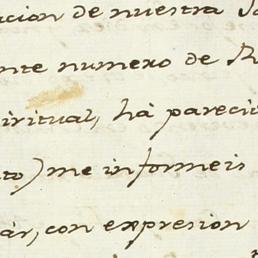 acion de nuestra S
nte numero de R
iritual, hà pareci
to) me informeis
ar, con expresion